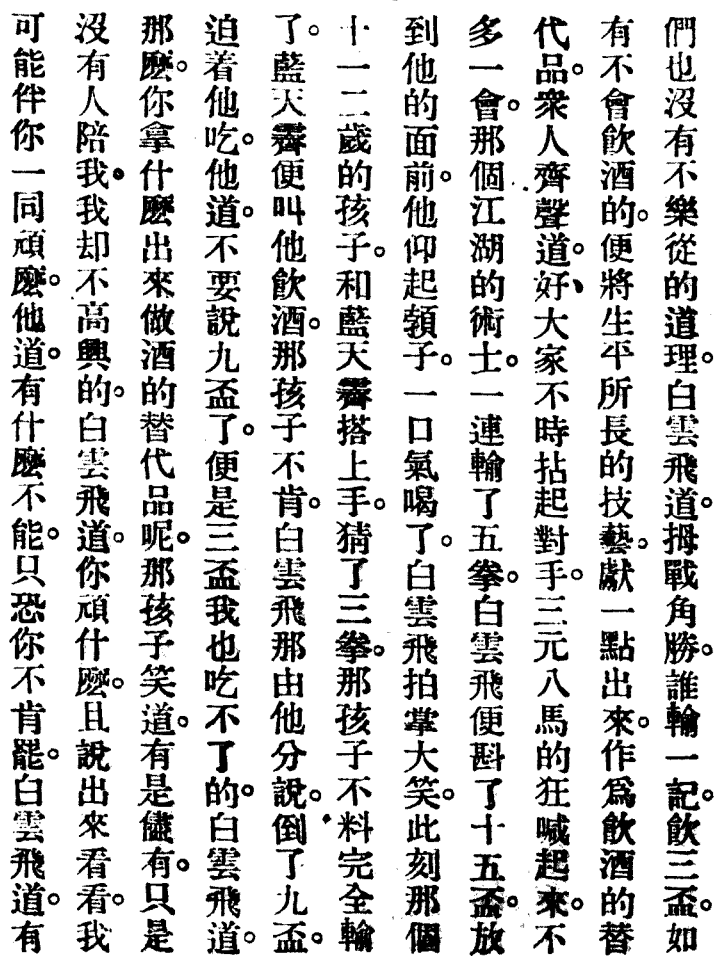 們也沒有不樂從的道理。白雲飛道。拇戰角勝。誰輸一記。飲三盃。如
有不會飲酒的。便將生平所長的技藝。獻一點出來。作爲飲酒的替
代品。衆人齊聲道。好、大家不時拈起對手。三元八馬的狂喊起來。不
多一會。那個江湖的術士。一連輸了五拳。白雲飛便斟了十五盃。放
到他的面前。他仰起頷子。一口氣喝了。白雲飛拍掌大笑。此刻那個
十一二歲的孩子。和藍天霽搭上手。猜了三拳。那孩子不料完全輸
了。藍天霽便叫他飲酒。那孩子不肯。白雲飛那由他分說。倒了九盃。
迫着他吃。他道。不要說九盃了。便是三盃我也吃不了的。白雲飛道。
那麽。你拿什麽出來做酒的替代品呢。那孩子笑道。有是儘有。只是
沒有人陪我。我却不高興的。白雲飛道。你頑什麽。且說出來看看。我
可能伴你一同頑麽。他道。有什麽不能。只恐你不肯罷。白雲飛道。有